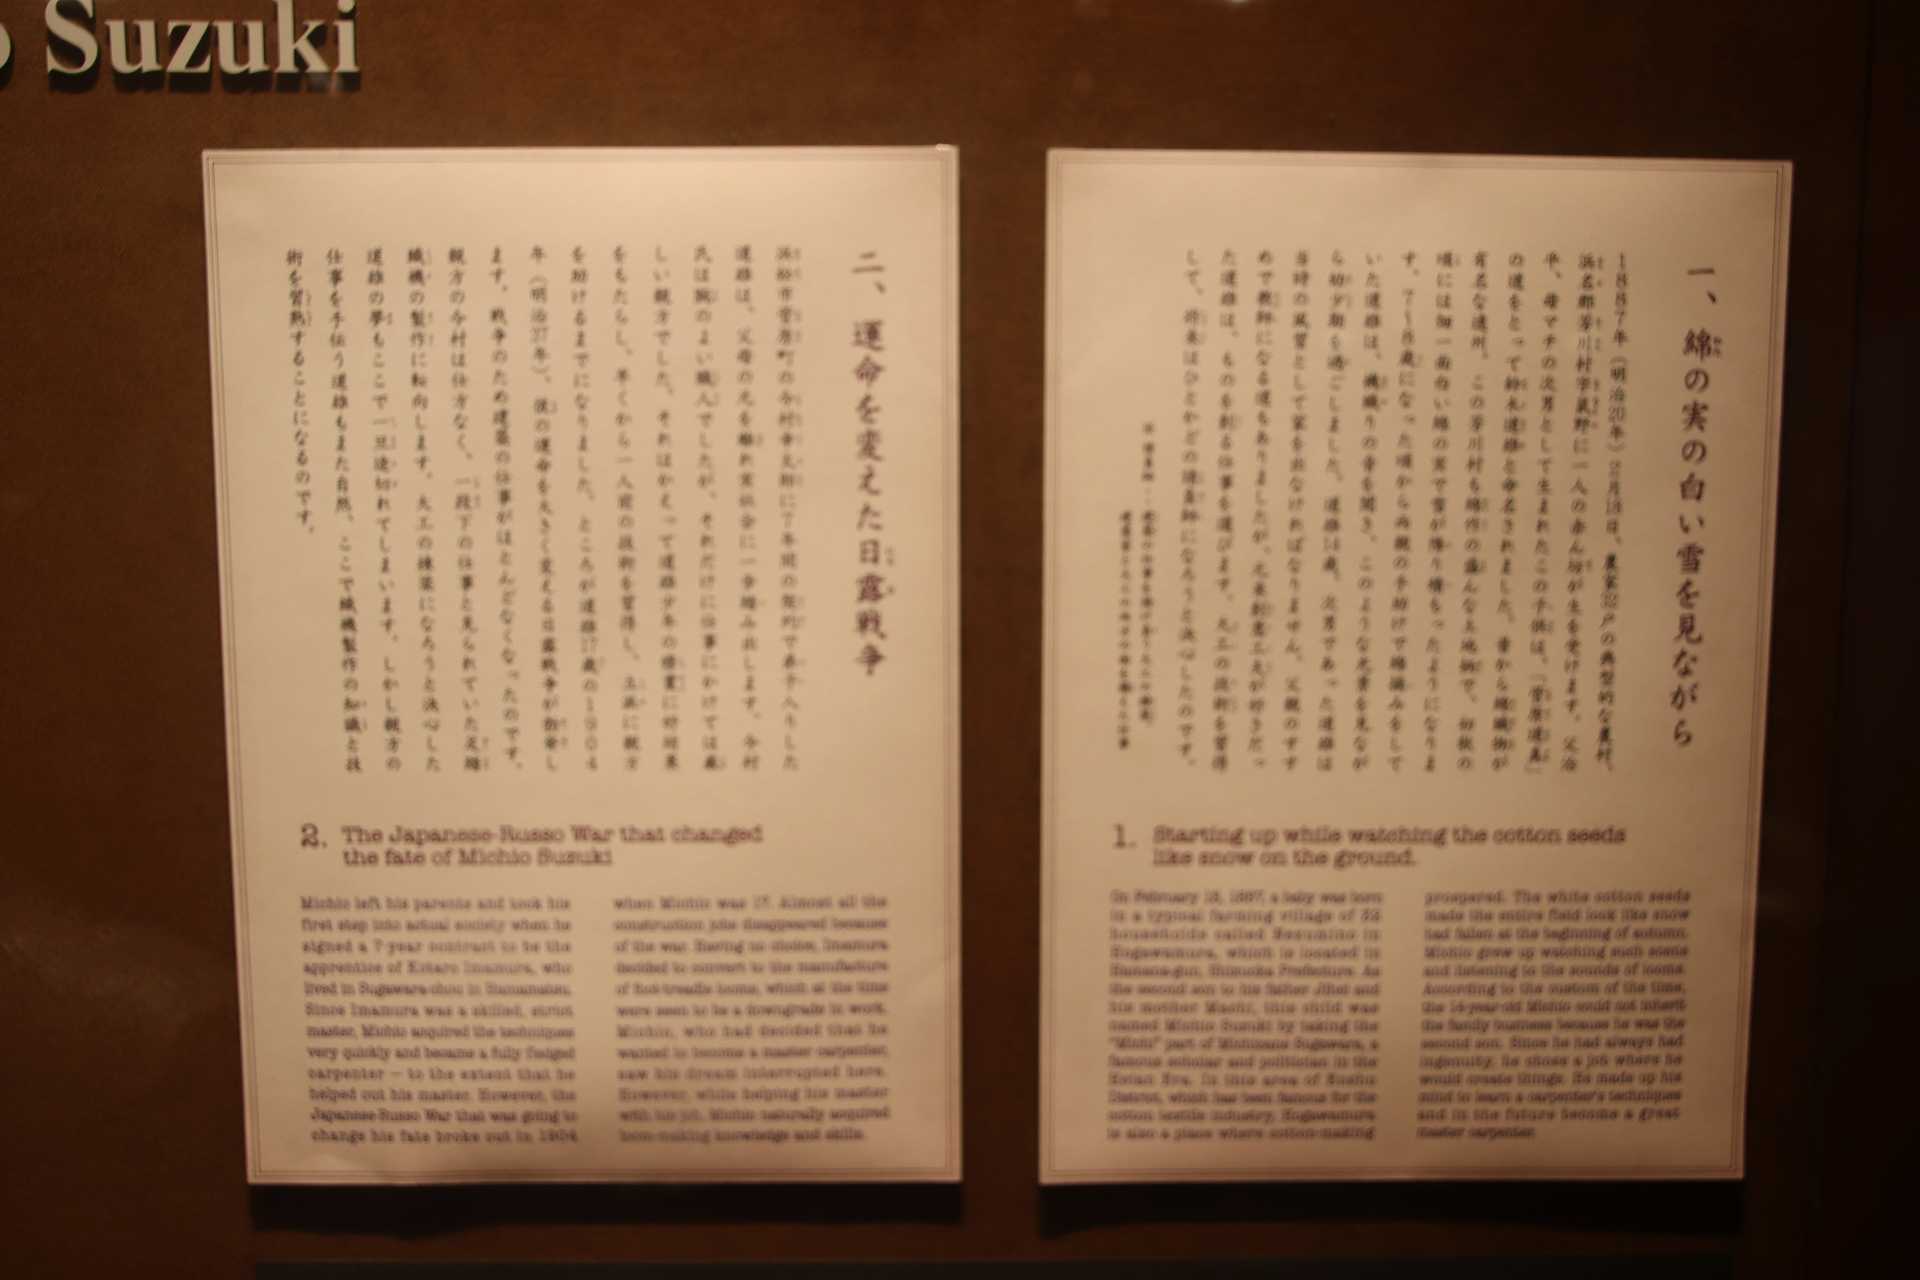 o Suzuki
一、綿の実の白い雪を見ながら
1887年(明治20年)2月18日、農家32戸の典型的な農村、
浜名郡芳川村字鼠野に一人の赤ん坊が生を受けます。父治
平、母マチの次男として生まれたこの子供は、「菅原道真」
の道をとって鈴木道雄と命名されました。昔から綿織物が
有名な遠州。この芳川村も綿作の盛んな土地柄で、初秋の
頃には畑一面白い綿の実で雪が降り積もったようになりま
す。7〜8歳になった頃から両親の手助けで綿摘みをして
いた道雄は、機織りの音を聞き、このような光景を見なが
ら幼少期を過ごしました。道雄14歳。次男であった道雄は
当時の風習として家を出なければなりません。父親のすす
めで教師になる道もありましたが、元来創意工夫が好きだっ
た道雄は、ものを創る仕事を選びます。大工の技術を習得
して、将来はひとかどの
になろうと決心したのです。
1. Starting up while watching the cotton seeds
like snow on the ground.
On February 18, 1887, a baby was born
in a typical farming village of 32
households called Nezumino in
Hogawamura, which is located in
Hamana-gun, Shizuoka Prefecture. As
the second son to his father Jihei and
his mother Machi, this child was
named Michio Suzuki by taking the
"Michi" part of Michizane Sugawara, a
famous scholar and politician in the
Heian Era. In this area of Enshu
District, which has been famous for the
cotton textile industry, Hogawamura
is also a place where cotton-making
prospered. The white cotton seeds
made the entire field look like snow
had fallen at the beginning of autumn.
Michio grew up watching such scene
and listening to the sounds of looms.
According to the custom of the time,
the 14-year-old Michio could not inherit
the family business because he was the
second son. Since he had always had
ingenuity, he chose a job where he
would create things. He made up his
mind to learn a carpenter's techniques
and in the future become a great
master carpenter.
二、運命を変えた日露戦争
浜松市菅原町の今村幸太郎に7年間の契約で弟子入りした
道雄は、父母の元を離れ実社会に一歩踏み出します。今村
氏は腕のよい職人でしたが、それだけに仕事にかけては厳
しい親方でした。それはかえって道雄少年の修業に好結果
をもたらし、早くから一人前の技術を習得し、
に親方
を助けるまでになりました。ところが道雄17歳の1904
年(明治37年)、彼の運命を大きく変える日露戦争が勃発し
ます。戦争のため建築の仕事がほとんどなくなったのです。
親方の今村は仕方なく、一段下の仕事と見られていた足踏
織機の製作に転向します。大工の棟梁になろうと決心した
道雄の夢もここで一旦途切れてしまいます。しかし親方の
仕事を手伝う道雄もまた自然、ここで織機製作の知識と技
術を習熟することになるのです。
2. The Japanese-Russo War that changed
the fate of Michio Suzuki
Michio left his parents and took his
first step into actual society when he
signed a 7-year contract to be the
apprentice of Kotaro Imamura, who
lived in Sugawara-chou in Hamamatsu.
Since Imamura was a skilled, strict
master, Michio acquired the techniques
very quickly and became a fully fledged
carpenter — to the extent that he
helped out his master. However, the
Japanese-Russo War that was going to
change his fate broke out in 1904
when Michio was 17. Almost all the
construction jobs disappeared because
of the war. Having no choice, Imamura
decided to convert to the manufacture
of foot-treadle looms, which at the time
were seen to be a downgrade in work.
Michio, who had decided that he
wanted to become a master carpenter,
saw his dream interrupted here.
However, while helping his master
with his job, Michio naturally acquired
loom-making knowledge and skills.